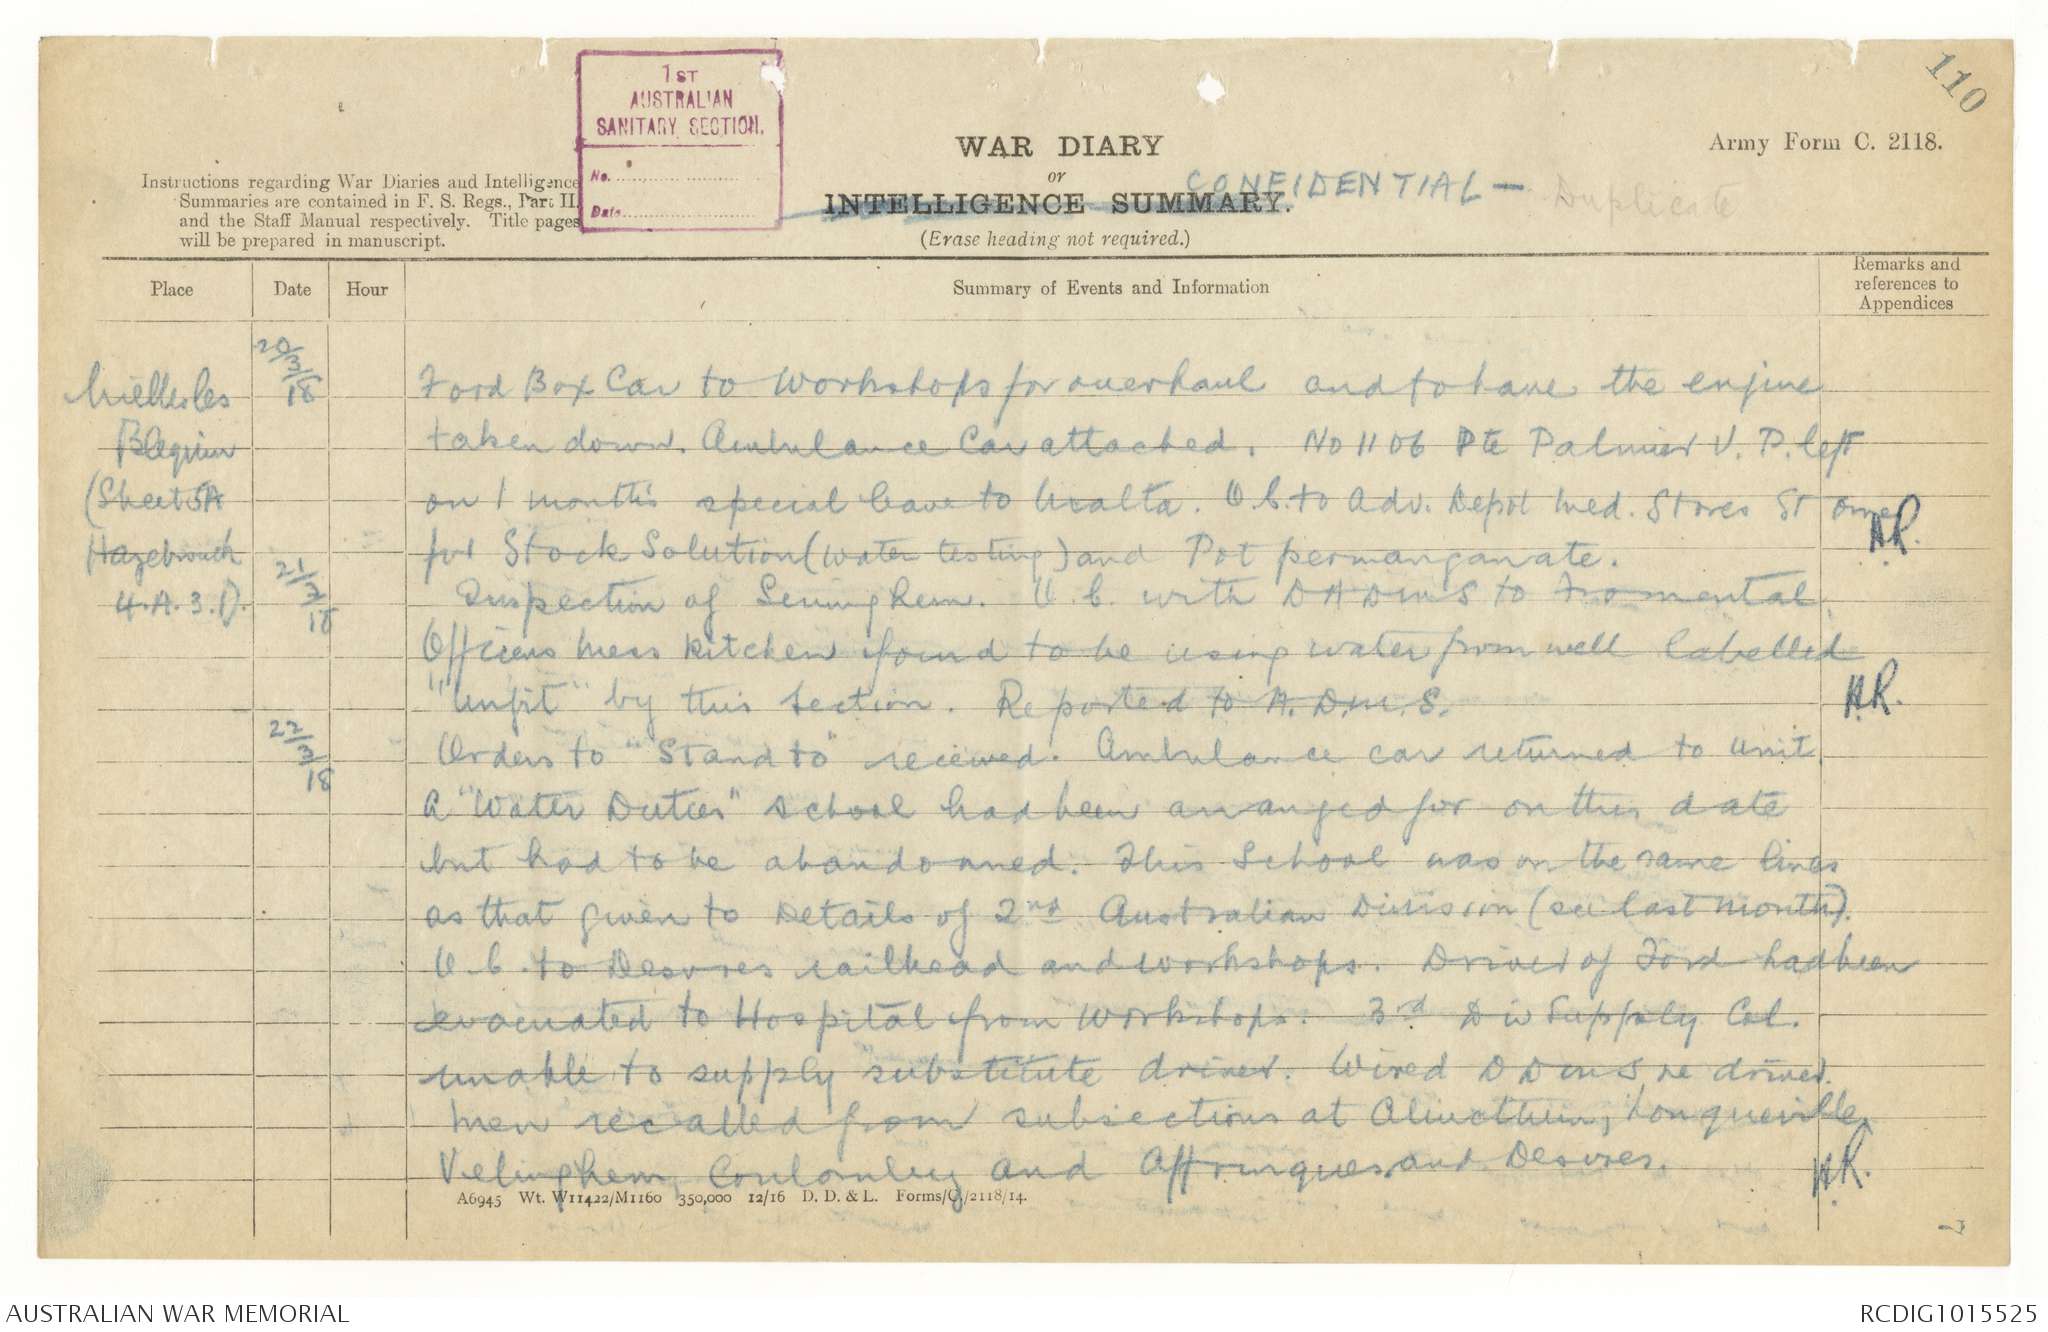 110
1ST
AUSTRALIAN
SANITARY SECTION.
No.
Date
WAR DIARY
or
INTELLIGENCE SUMMARY.
CONFIDENTIAL — Duplicate
(Erase heading not required.)
Army Form C. 2118.
Instructions regarding War Diaries and Intelligence
Summaries are contained in F. S. Regs., Part II.
and the Staff Manual respectively. Title pages
will be prepared in manuscript.
Place
Date
Hour
Summary of Events and Information
Remarks and
references to
Appendices
Belgium
(Sheet 5A
Hazebrouck
4.A.3.D.
20/3/18
Ford Box Car to Workshops for overhaul and to have the engine
taken down. Ambulance Car attached. No 1106 Pte Palmer V. P. left
on 1 month's special leave to Malta. O.C. to Adv. Depot Med. Stores St Omer
for Stock Solution (water testing) and Pot permanganate.
A.R.
21/3/18
Inspection of Seninghem. O.C. with DADMS to Fromental.
Officers Mess Kitchen found to be using water from well labelled
"Unfit" by this Section. Reported to A.D.M.S.
A.R.
22/3/18
Orders to "Stand to" received. Ambulance car returned to unit.
A "Water Duties" school had been arranged for on this date
but had to be abandonned. This School was on the same lines
as that given to Details of 2nd Australian Division (see last month).
O.C. to Desvres railhead and workshops. Driver of Ford had been
evacuated to Hospital from Workshops. 3rd Div Supply Col.
unable to supply substitute driver. Wired DDMS re driver.
Men recalled from subsections at Alincthun, Longueville,
Velinghem, Coulomby and Affringues and Desvres.
A.R.
A6945 Wt. W11422/M1160 350,000 12/16 D. D. & L. Forms/C/2118/14.
AUSTRALIAN WAR MEMORIAL
RCDIG1015525